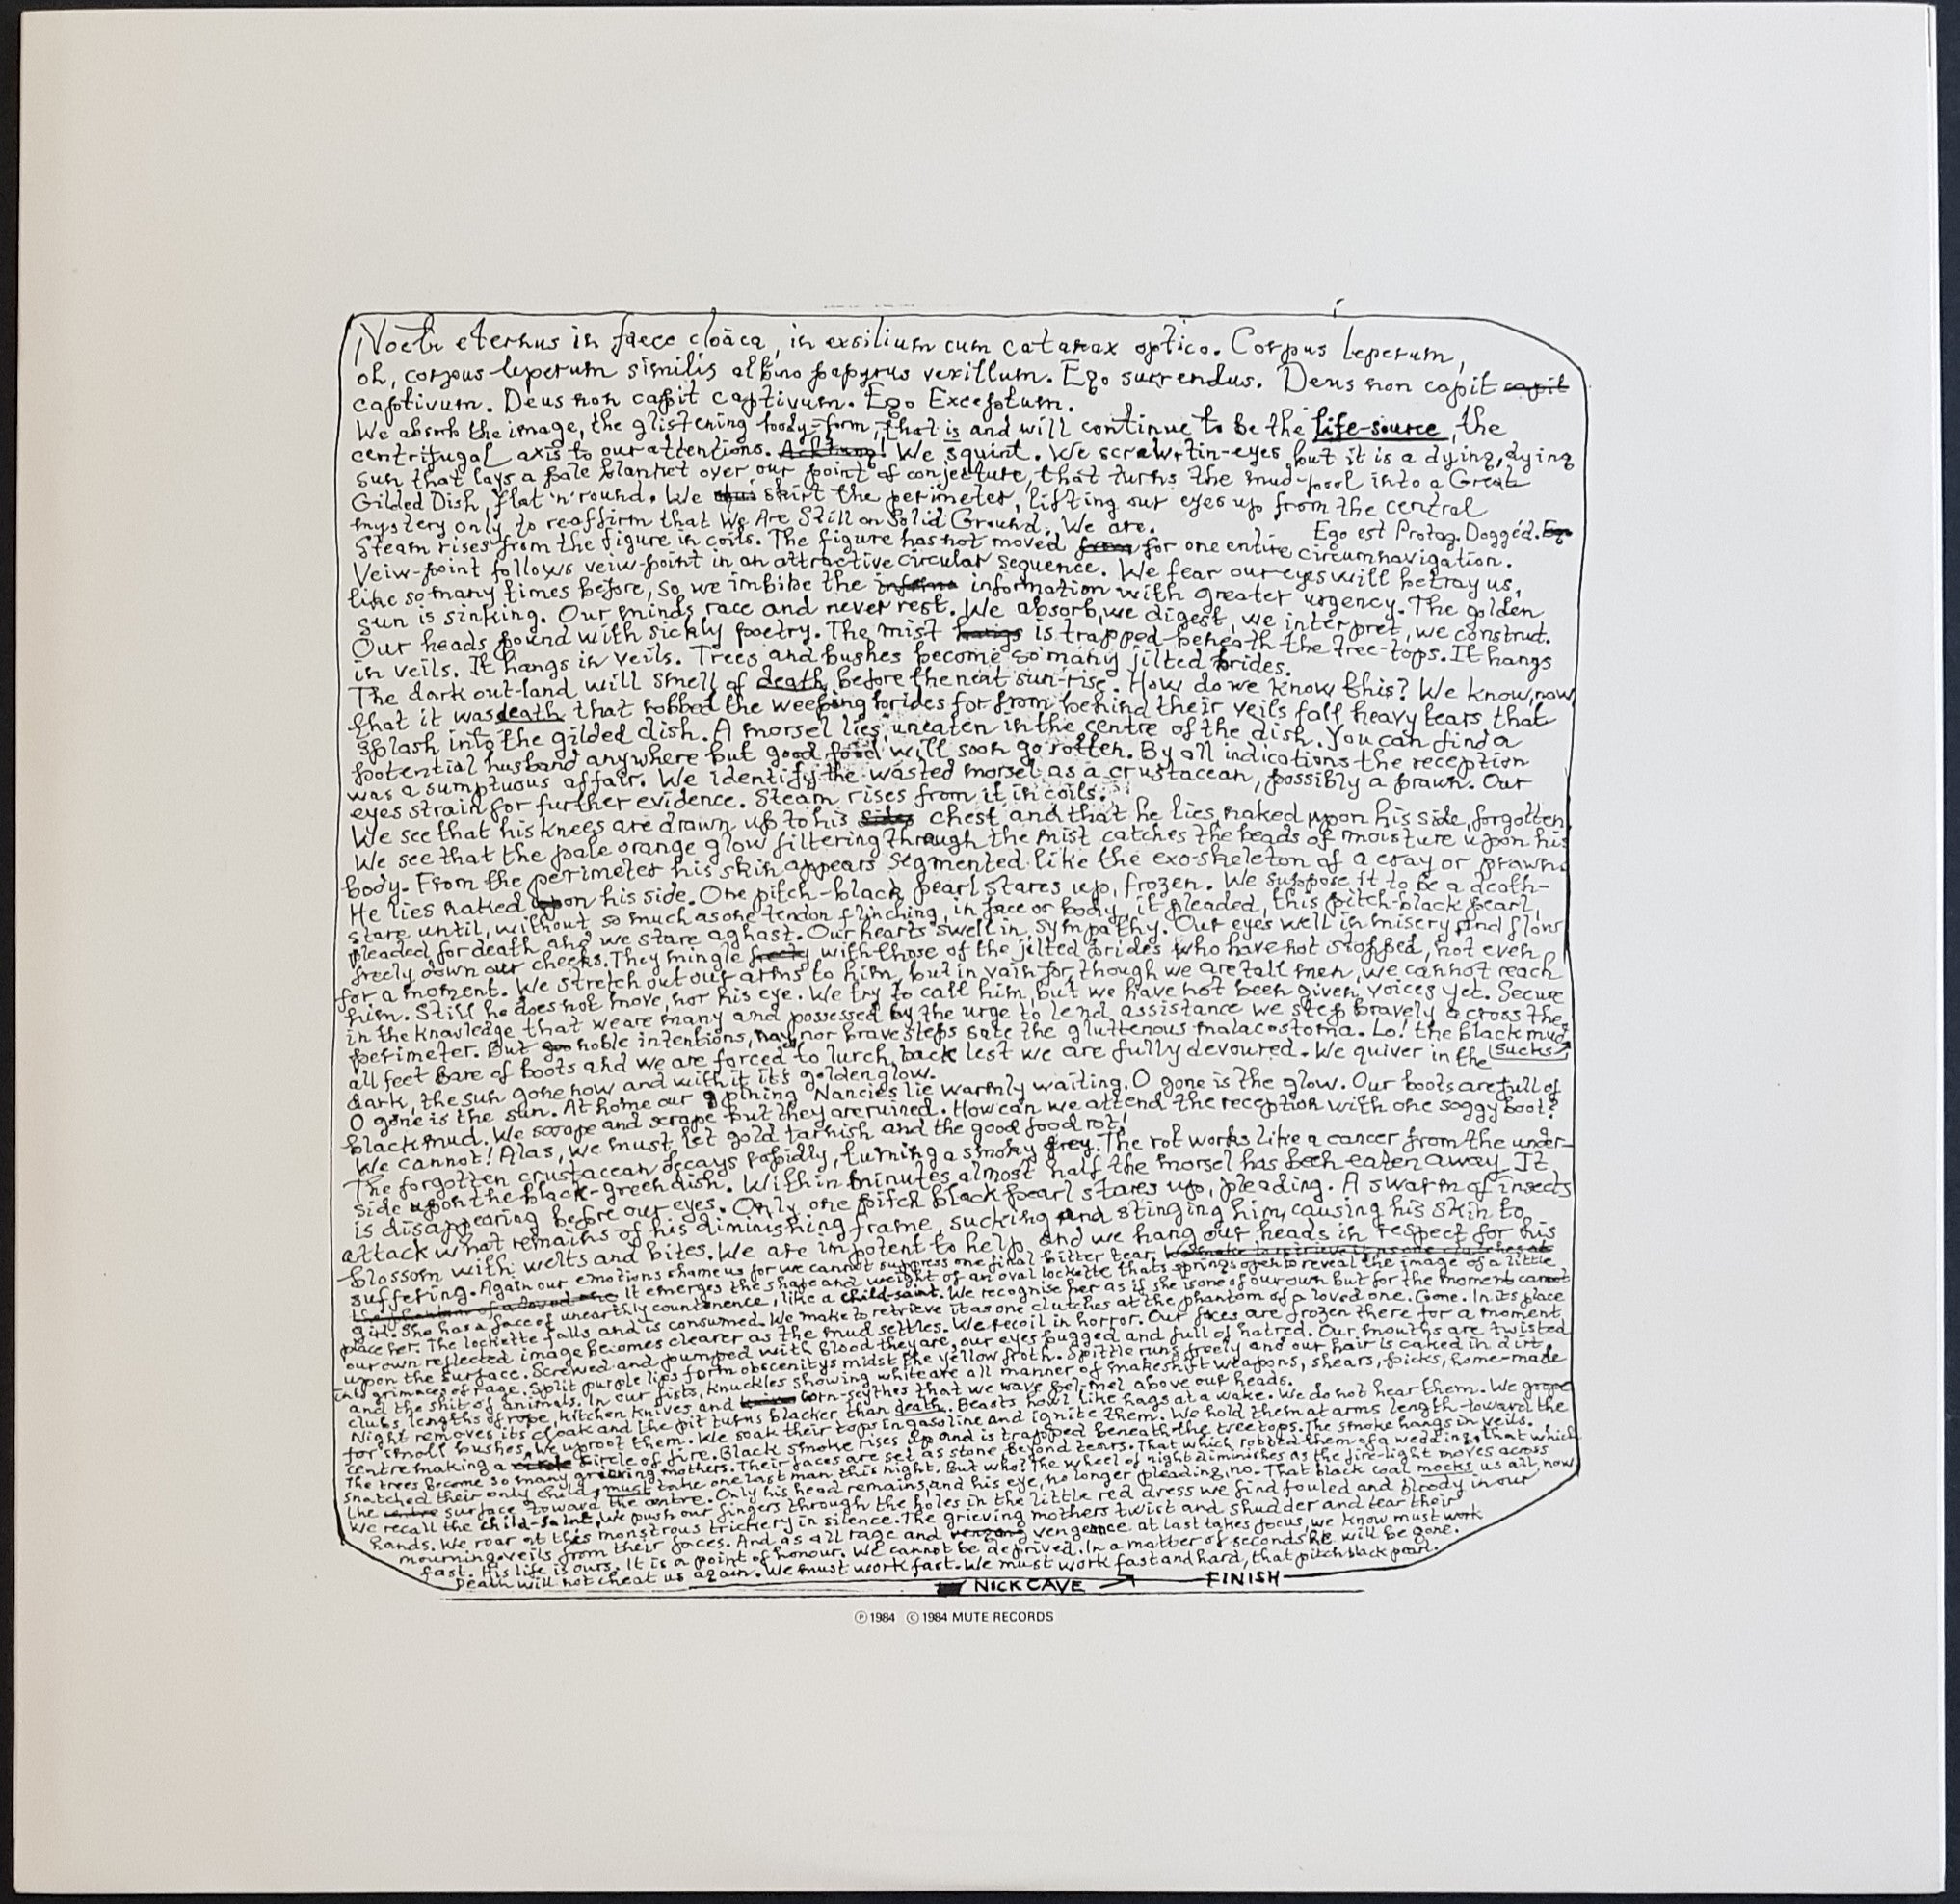 Noctis eternus in faece cloäca, in exsilium cum catarax optico. Corpus leperum,
oh, corpus leperum similis albino papyrus vexillum. Ego surrendus. Deus non capit capit
captivum. Deus non capit captivum. Ego Exceptum.
We absorb the image, the glistening body-form, that is and will continue to be the life-source, the
centrifugal axis to our attentions. We squint. We screw-tin-eyes but it is a dying, dying
sun that lays a pale blanket over our point of conjecture, that turns the mud-pool into a Great
Gilded Dish, flat 'n' round. We skirt the perimeter, lifting our eyes up from the central
mystery only to reaffirm that We Are Still on Solid Ground. We are.
Ego est Protag. Dogged. Ego
Steam rises from the figure in coils. The figure has not moved from for one entire circumnavigation.
Veiw-point follows veiw-point in an attractive circular sequence. We fear our eyes will betray us,
like so many times before, so we imbibe the informa information with greater urgency. The golden
sun is sinking. Our minds race and never rest. We absorb, we digest, we interpret, we construt.
Our heads pound with sickly poetry. The mist hangs is trapped beneath the tree-tops. It hangs
in veils. It hangs in veils. Trees and bushes become so many jilted brides.
The dark out-land will smell of death before the next sun-rise. How do we know this? We know, now,
that it was death that robbed the weeping brides for from behind their veils fall heavy tears that
splash into the gilded dish. A morsel lies uneaten in the centre of the dish. You can find a
potential husband anywhere but good food will soon go rotten. By all indications the reception
was a sumptuous affair. We identify the wasted morsel as a crustacean, possibly a prawn. Our
eyes strain for further evidence. Steam rises from it in coils.
We see that his knees are drawn up to his sides chest and that he lies, naked upon his side, forgotten.
We see that the pale orange glow filtering through the mist catches the beads of moisture upon his
body. From the perimeter his skin appears segmented like the exo-skeleton of a cray or prawn.
He lies naked upon his side. One pitch-black pearl stares up, frozen. We suppose it to be a death-
stare until, without so much as one tendon flinching, in face or body, it pleaded, this pitch-black pearl,
pleaded for death and we stare aghast. Our hearts swell in sympathy. Our eyes well in misery and flow
freely down our cheeks. They mingle freely with those of the jilted brides who have not stopped, not even
for a moment. We stretch out our arms to him, but in vain for, though we are tall men, we cannot reach
him. Still he does not move, nor his eye. We try to call him, but we have not been given voices yet. Secure
in the knowledge that we are many and possessed by the urge to lend assistance we step bravely across the
perimeter. But noble intentions, nay, nor brave steps sate the gluttenous malacostoma. Lo! the black mud
sucks
all feet bare of boots and we are forced to lurch back lest we are fully devoured. We quiver in the
dark, the sun gone now and with it it's golden glow.
O gone is the sun. At home our pining Nancies lie warmly waiting. O gone is the glow. Our boots are full of
black mud. We scrape and scrape but they are ruined. How can we attend the reception with one soggy boot?
We cannot! Alas, we must let gold tarnish and the good food rot!
The forgotten crustacean decays rapidly, turning a smoky grey. The rot works like a cancer from the under-
side upon the black-green dish. Within minutes almost half the morsel has been eaten away. It
is disappearing before our eyes. Only one pitch black pearl stares up, pleading. A swarm of insects
attack what remains of his diminishing frame, sucking and stinging him, causing his skin to
blossom with welts and bites. We are impotent to help and we hang our heads in respect for his
suffering. Again our emotions shame us for we cannot suppress one final bitter tear. We make to retrieve it as one clutches at
the phantom of a loved one It emerges the shape and weight of an oval lockette thats springs open to reveal the image of a little
girl. She has a face of unearthly countenence, like a child-saint. We recognise her as if she is one of our own but for the moment cannot
place her. The lockette falls and is consumed. We make to retrieve it as one clutches at the phantom of a loved one. Gone. In its place
our own reflected image becomes clearer as the mud settles. We recoil in horror. Our faces are frozen there for a moment
upon the surface. Screwed and pumped with blood they are, our eyes bugged and full of hatred. Our mouths are twisted
into grimaces of rage. Split purple lips form obscenitys midst the yellow froth. Spittle runs freely and our hair is caked in dirt
and the shit of animals. In our fists, knuckles showing white are all manner of makeshift weapons, shears, picks, home-made
clubs lengths of rope, kitchen knives and corn-scythes that we wave pel-mel above our heads.
Night removes its cloak and the pit turns blacker than death. Beasts howl like hags at a wake. We do not hear them. We grope
for small bushes. We uproot them. We soak their tops in gasoline and ignite them. We hold them at arms length toward the
centre making a circle circle of fire. Black smoke rises up and is trapped beneath the treetops. The smoke hangs in veils.
The trees become so many grieving mothers. Their faces are set as stone beyond tears. That which robbed them of a wedding, that which
snatched their only child, must take one last man this night. But who? The wheel of night diminishes as the fire-light moves across
the centre surface toward the centre. Only his head remains, and his eye, no longer pleading, no. That black coal mocks us all, now
We recall the child-saint. We push our fingers through the holes in the little red dress we find fouled and bloody in our
hands. We roar at this monstrous trickery in silence. The grieving mothers twist and shudder and tear their
mourning-veils from their faces. And as all rage and vengeance at last takes focus, we know must work
fast. His life is ours. It is a point of honour. We cannot be deprived. In a matter of seconds he will be gone.
Death will not cheat us again. We must work fast. We must work fast and hard, that pitch black pearl.
NICK CAVE FINISH
℗ 1984 © 1984 MUTE RECORDS